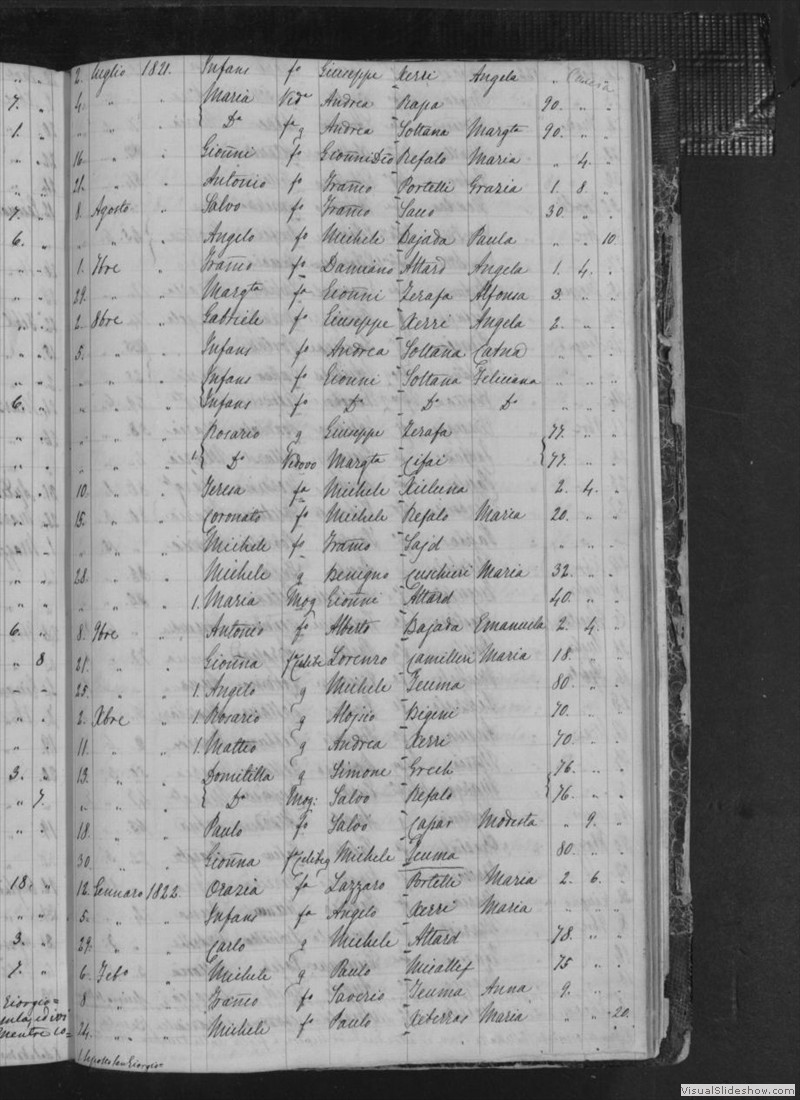 2. Luglio 1821. Infans fo Giuseppe Xerri Angela " Concia
7. " 4. " " Maria Veda Andrea Rapa 90. " "
1. " " " { Da fa g Andrea Soltana Margta 90. " "
16. " " Gionni fo Gionni Refalo Maria " 4. "
21. " " Antonio fo Franco Portelli Grazia 1. 8. "
7. " 8. Agosto " Salvo fo Franco 30. " "
6. " " " Angelo fo Michele Bajada Paula " " 10
1. 7bre " Franco fo Damiano Attard Angela 1. 4. "
29. " " Margta fa Gionni Zerafa Alfonsa 3. " "
2. 8bre " Gabriele fo Giuseppe Xerri Angela 2. " "
5. " " Infans fo Andrea Soltana Catna " " "
" " " Infans fo Gionni Soltana Feliciana " " "
6. " " " Infans fo Do Do Do " " "
" " " Rosario g Giuseppe Zerafa 77. " "
" " " { Do Vedovo Margta Cifai { 77. " "
10. " " Teresa fa Michele Xicluna 2. 4. "
15. " " Coronato fo Michele Refalo Maria 20. " "
" " " Michele fo Franco Sajd " " "
28. " " Michele g Benigno Cuschieri Maria 32. " "
" " " 1. Maria Mog Gionni Attard 40. " "
6. " 8. 9bre " Antonio fo Alberto Bajada Emanuela 2. 4. "
" 8 21. " " Gionna f Celibe Lorenzo Camilleri Maria 18. " "
25. " " 1. Angelo g Michele Teuma 80. " "
2. Xbre " 1. Rosario g Aloisio Bigeni 70. " "
11. " " 1. Matteo g Andrea Xerri 70. " "
3. " 13. " " Domitilla g Simone Grech { 76. " "
" 7. " " " { Da Mog: Salvo Refalo 76. " "
18. " " Paulo fo Salvo Capar Modesta " 9. "
30. " " Gionna f Celibe g Michele Teuma 80. " "
18. " 12. Gennaro 1822. Orazia fa Lazzaro Portelli Maria 2. 6. "
5. " " Infans fo Angelo Xerri Maria " " "
3. " 29. " " Carlo g Michele Attard 78. " "
7. " 6. Febo " Michele g Paulo Micallef 75 " "
Giorgio= 8 " " Franco fo Saverio Teuma Anna 9. " "
mentre co= 24. " " Michele fo Paulo Xiberras Maria " " 20.
Giorgio
VisualSlideshow.com